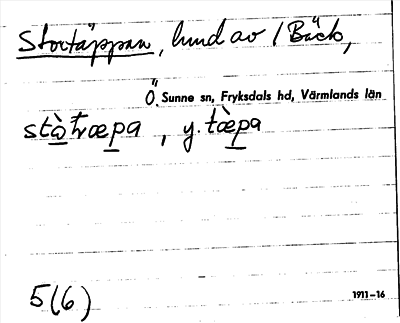 Stortäppan, lund av 1 Bäck,
Ö. Sunne sn, Fryksdals hd, Värmlands län
5(6)
1911-16